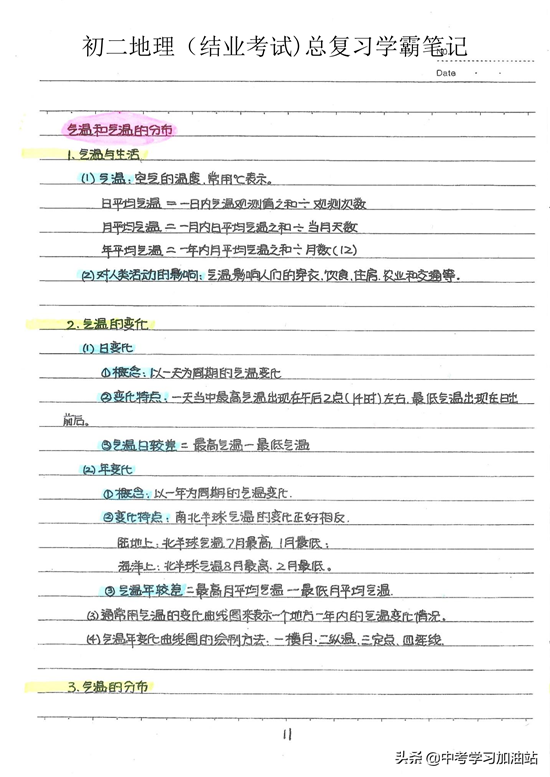 初二地理（结业考试)总复习学霸笔记
No.
Date · ·
气温和气温的分布
1、气温与生活
(1)气温：空气的温度,常用℃表示。
日平均气温＝一日内气温观测值之和÷观测次数
月平均气温＝一月内日平均气温之和÷当月天数
年平均气温＝一年内月平均气温之和÷月数(12)
(2)对人类活动的影响：气温影响人们的穿衣、饮食、住房、农业和交通等。
2、气温的变化
(1)日变化
①概念：以一天为周期的气温变化
②变化特点：一天当中最高气温出现在午后2点(14时)左右,最低气温出现在日出
前后。
③气温日较差＝最高气温－最低气温
(2)年变化
①概念：以一年为周期的气温变化.
②变化特点：南北半球气温的变化正好相反.
陆地上：北半球气温7月最高,1月最低；
海洋上：北半球气温8月最高、2月最低。
③气温年较差＝最高月平均气温－最低月平均气温.
(3)通常用气温的变化曲线图来表示一个地方一年内的气温变化情况。
(4)气温年变化曲线图的绘制方法：一横月.二纵温.三定点.四连线.
3、气温的分布
11
头条@中考学习加油站